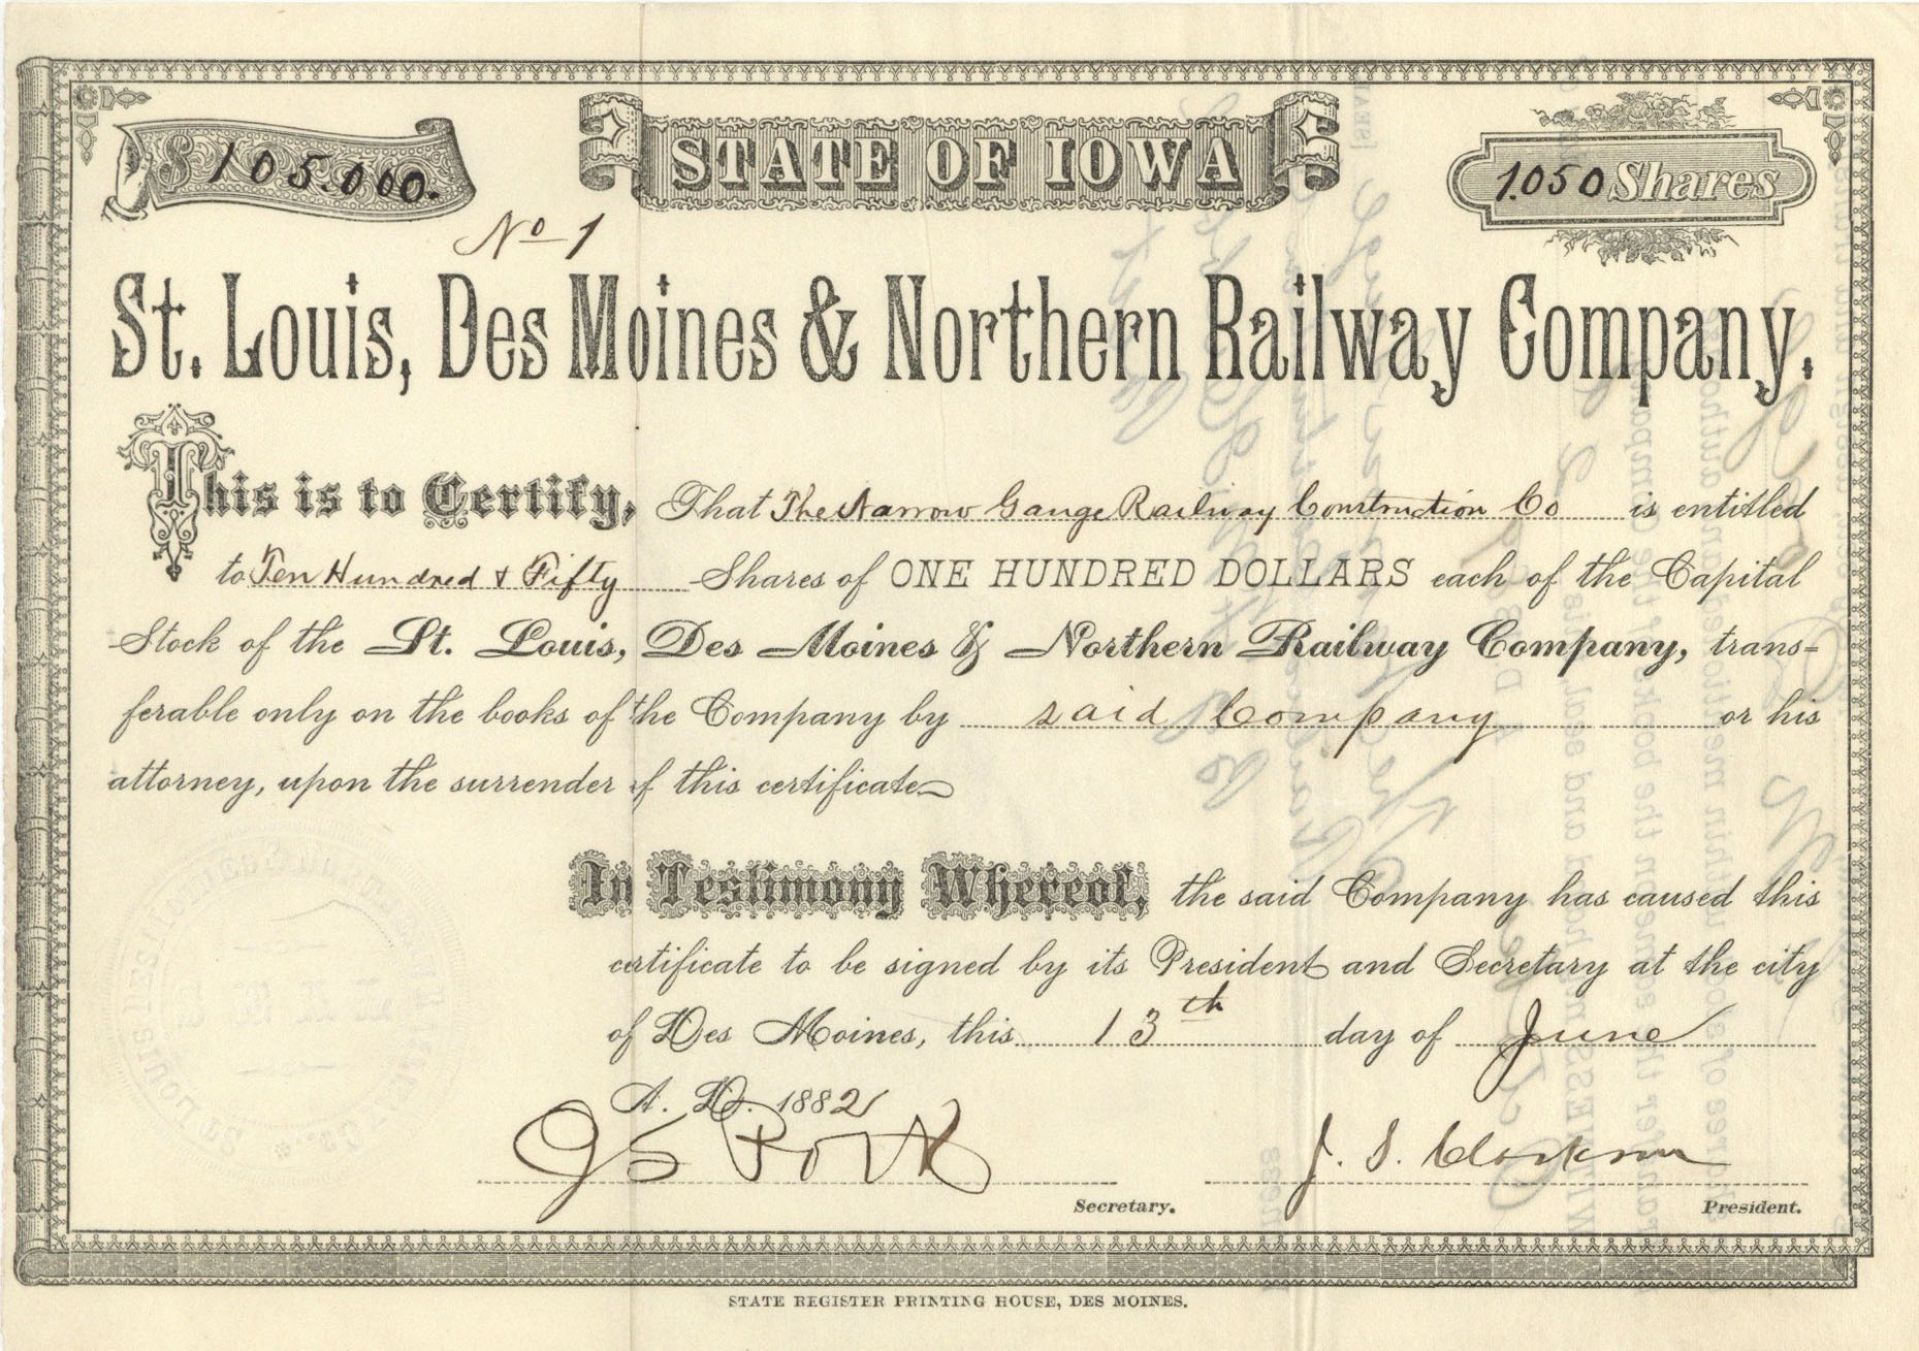 $ 105.000.
STATE OF IOWA
1.050 Shares
No 1
St. Louis, Des Moines & Northern Railway Company.
This is to Certify, That The Narrow Gauge Railway Construction Co is entitled
to Ten Hundred & Fifty Shares of ONE HUNDRED DOLLARS each of the Capital
Stock of the St. Louis, Des Moines & Northern Railway Company, trans=
ferable only on the books of the Company by said Company or his
attorney, upon the surrender of this certificate
In Testimony Whereof, the said Company has caused this
certificate to be signed by its President and Secretary at the city
of Des Moines, this 13th day of June
A. D. 1882
J. S. Clarkson
Secretary.
President.
STATE REGISTER PRINTING HOUSE, DES MOINES.